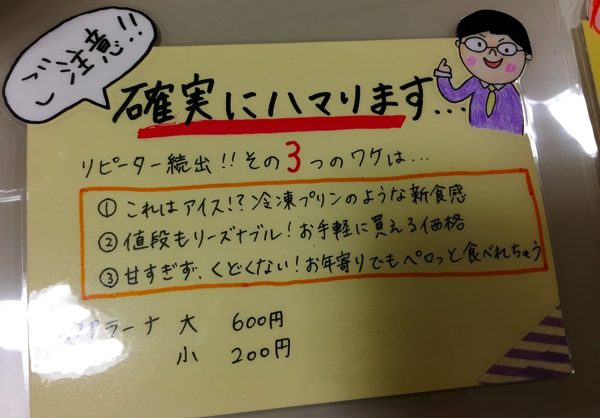 ご注意!!
確実にハマります...
リピーター続出!!その3つのワケは...
①これはアイス!?冷凍プリンのような新食感
②値段もリーズナブル!お手軽に買える価格
③甘すぎず、くどくない!お年寄りでもペロッと食べれちゃう
ラーナ 大 600円
小 200円